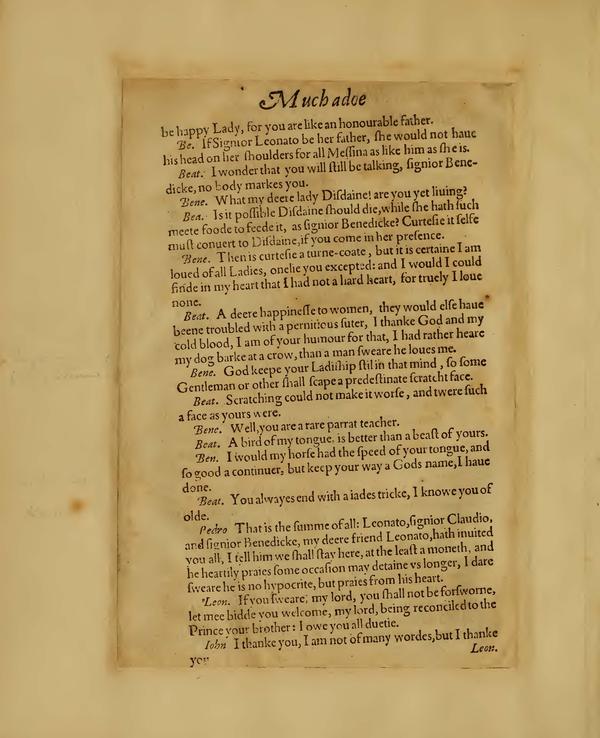 Much adoe
be happy Lady, for you are like an honourable father.
Be. If Signior Leonato be her father, ſhe would not haue
his head on her ſhoulders for all Meſſina as like him as ſhe is.
Beat. I wonder that you will ſtill be talking, ſignior Bene-
dicke, no body markes you.
Bene. What my deere lady Diſdaine! are you yet liuing?
Bea. Is it poſſible Diſdaine ſhould die, while ſhe hath ſuch
meete foode to feede it, as ſignior Benedicke? Curteſie it ſelfe
muſt conuert to Diſdaine, if you come in her preſence.
Bene. Then is curteſie a turne-coate, but it is certaine I am
loued of all Ladies, onelie you excepted: and I would I could
finde in my heart that I had not a hard heart, for truely I loue
none.
Beat. A deere happineſſe to women, they would elſe haue
beene troubled with a pernitious ſuter, I thanke God and my
cold blood, I am of your humour for that, I had rather heare
my dog barke at a crow, than a man ſweare he loues me.
Bene. God keepe your Ladiſhip ſtil in that mind, ſo ſome
Gentleman or other ſhall ſcape a predeſtinate ſcratcht face.
Beat. Scratching could not make it worſe, and twere ſuch
a face as yours were.
Bene. Well, you are a rare parrat teacher.
Beat. A bird of my tongue, is better than a beaſt of yours.
Ben. I would my horſe had the ſpeed of your tongue, and
ſo good a continuer, but keep your way a Gods name, I haue
done.
Beat. You alwayes end with a iades tricke, I knowe you of
olde.
Pedro That is the ſumme of all: Leonato, ſignior Claudio,
and ſignior Benedicke, my deere friend Leonato, hath inuited
you all, I tell him we ſhall ſtay here, at the leaſt a moneth, and
he heartily praies ſome occaſion may detaine vs longer, I dare
ſweare he is no hypocrite, but praies from his heart.
Leon. If you ſweare, my lord, you ſhall not be forſworne,
let mee bidde you welcome, my lord, being reconciled to the
Prince your brother: I owe you all duetie.
Iohn I thanke you, I am not of many wordes, but I thanke
you
Leon.